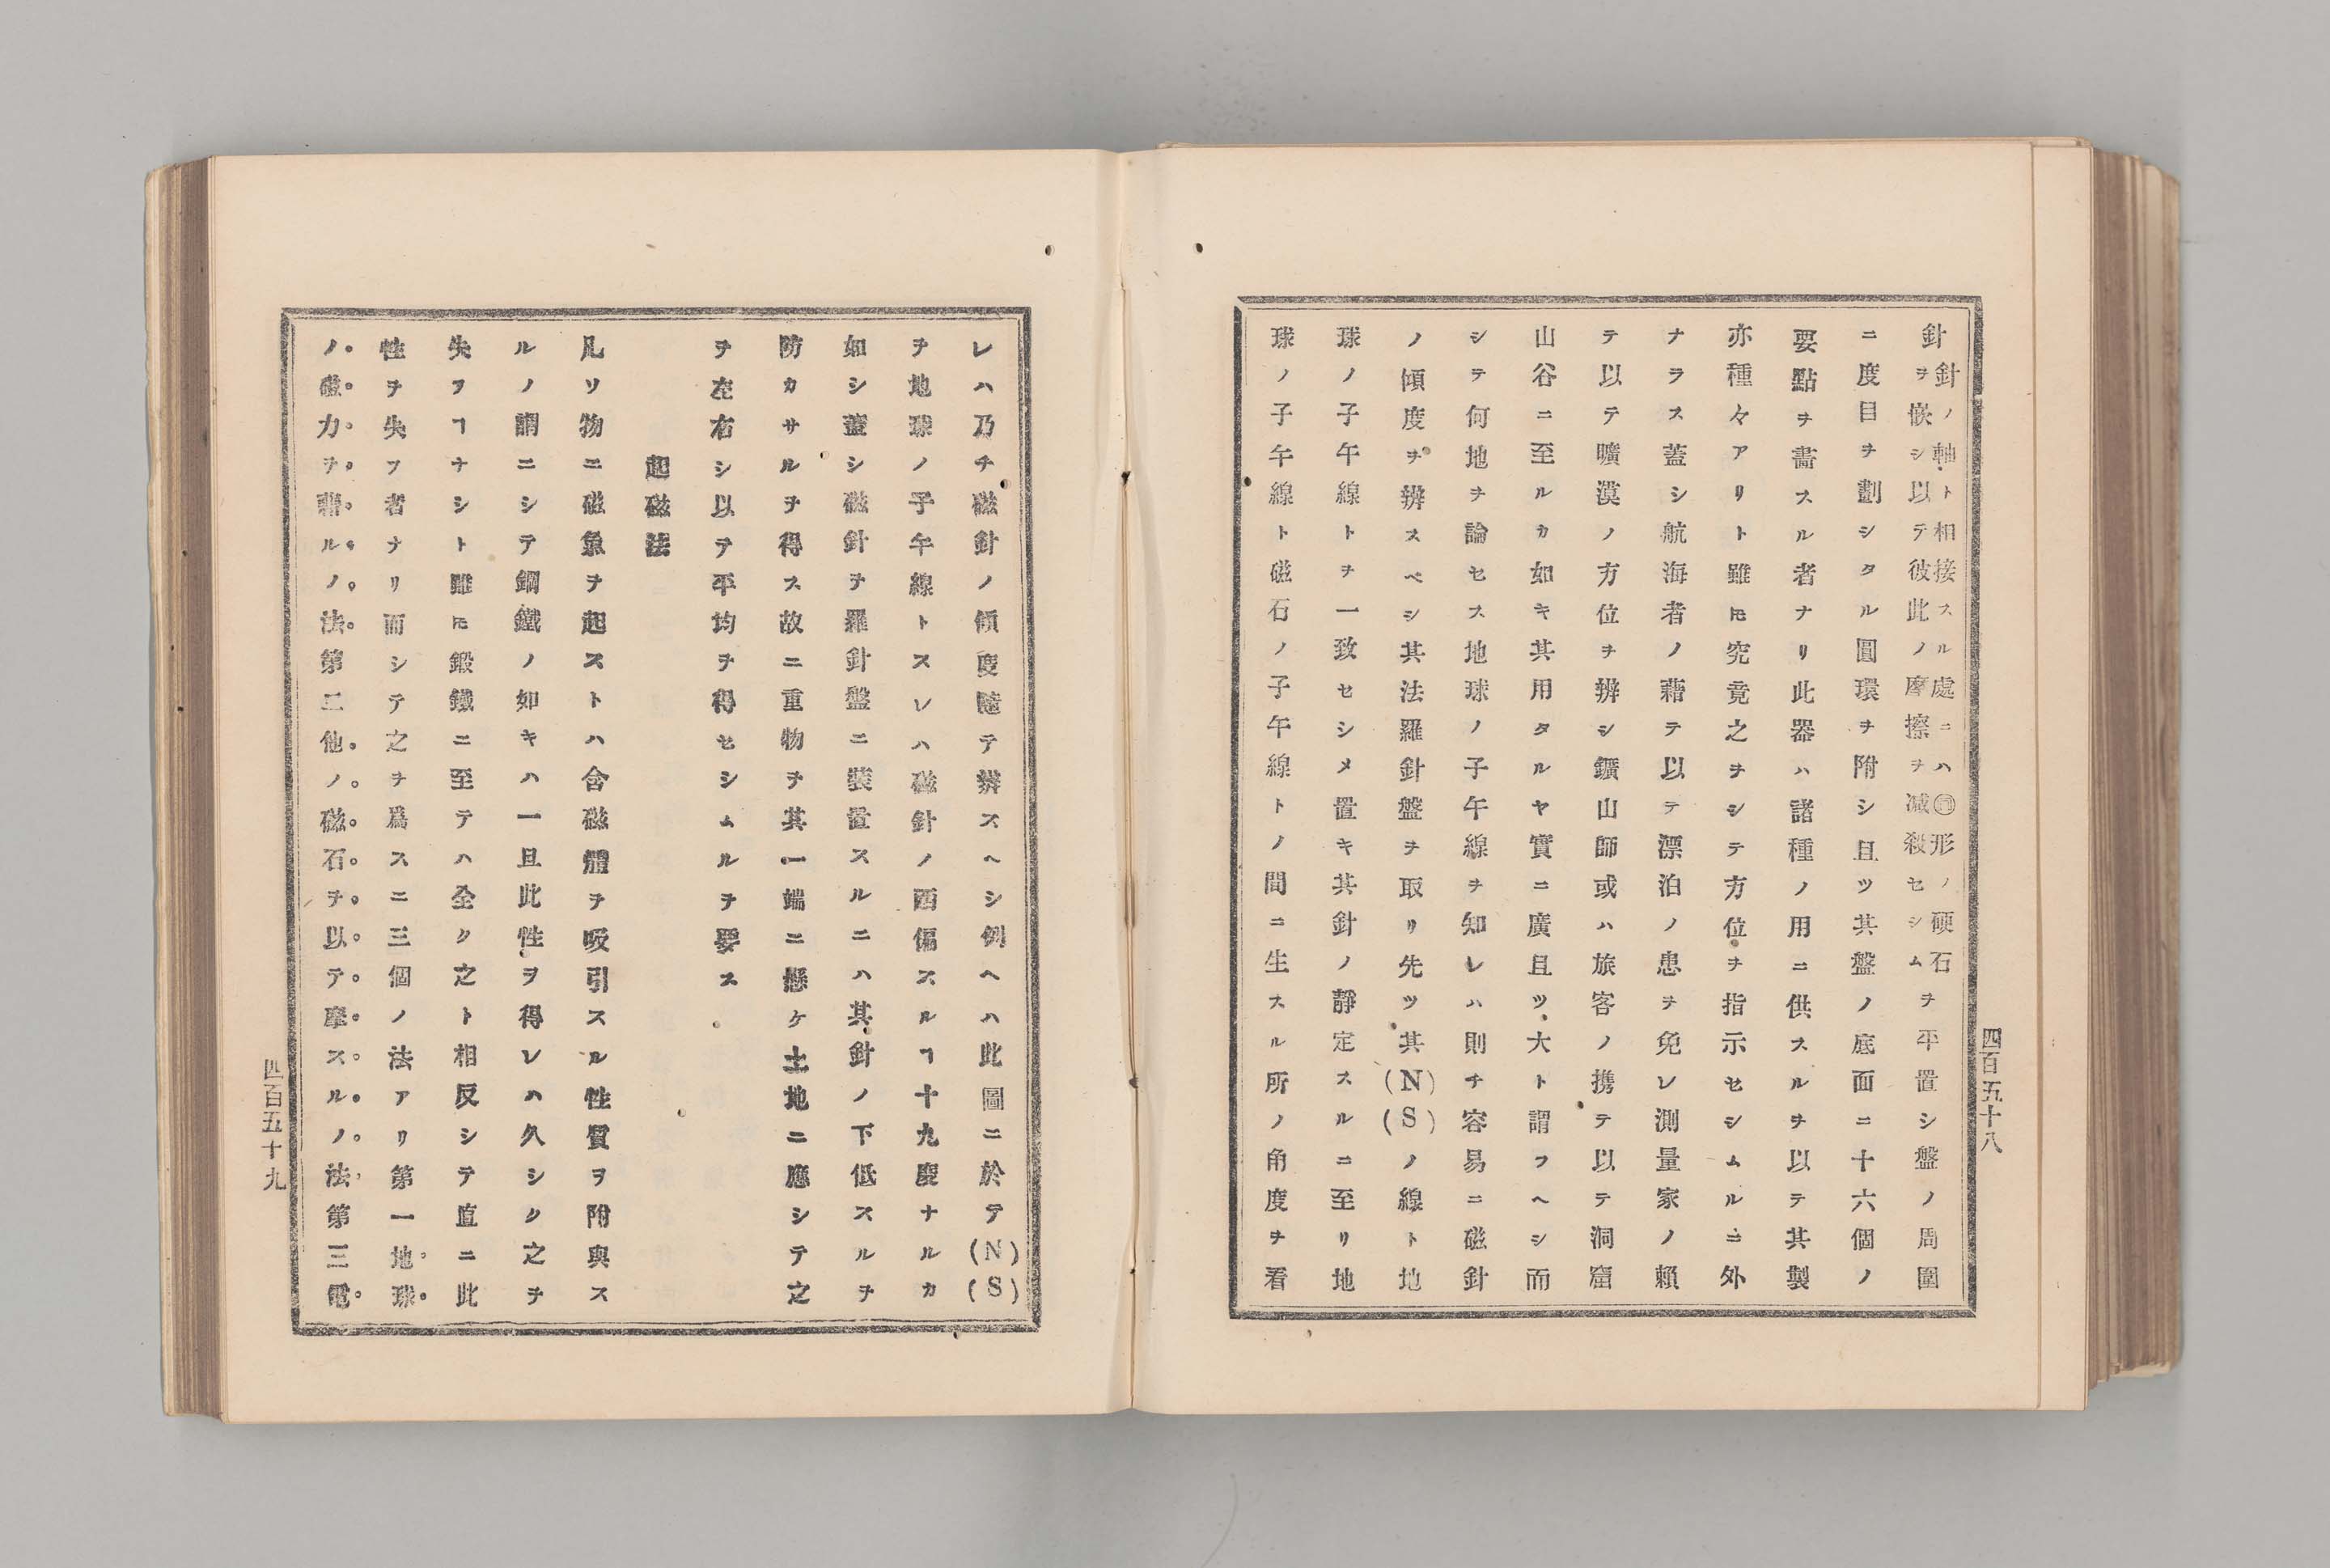 四百五十八
針針ノ軸ト相接スル處ニハ形ノ硬石ヲ嵌シ以テ彼此ノ摩擦ヲ减殺セシムヲ平置シ盤ノ周圍
ニ度目ヲ劃シタル圓環ヲ附シ且ツ其盤ノ底面ニ十六個ノ
要點ヲ畵スル者ナリ此器ハ諸種ノ用ニ供スルヲ以テ其製
亦種々アリト雖𪜈究竟之ヲシテ方位ヲ指示セシムルニ外
ナラス蓋シ航海者ノ藉テ以テ漂泊ノ患ヲ免レ測量家ノ賴
テ以テ曠漠ノ方位ヲ辨シ鑛山師或ハ旅客ノ携テ以テ洞窟
山谷ニ至ルカ如キ其用タルヤ實ニ廣且ツ大ト謂フヘシ而
シテ何地ヲ論セス地球ノ子午線ヲ知レハ則チ容易ニ磁針
ノ傾度ヲ辨スベシ其法羅針盤ヲ取リ先ツ其(N)(S)ノ線ト地
球ノ子午線トヲ一致セシメ置キ其針ノ靜定スルニ至リ地
球ノ子午線ト磁石ノ子午線トノ間ニ生スル所ノ角度ヲ看
レハ乃チ磁針ノ傾度隨テ辨スヘシ例ヘハ此圖ニ於テ(N)(S)
ヲ地球ノ子午線トスレハ磁針ノ西偏スルヿ十九度ナルカ
如シ蓋シ磁針ヲ羅針盤ニ裝置スルニハ其針ノ下低スルヲ
防カサルヲ得ス故ニ重物ヲ其一端ニ懸ケ土地ニ應シテ之
ヲ左右シ以テ平均ヲ得セシムルヲ要ス
起磁法
凡ソ物ニ磁象ヲ起ストハ含磁體ヲ吸引スル性質ヲ附與ス
ルノ謂ニシテ鋼鐵ノ如キハ一旦此性ヲ得レハ久シク之ヲ
失フヿナシト雖𪜈鍛鐵ニ至テハ全ク之ト相反シテ直ニ此
性ヲ失フ者ナリ而シテ之ヲ爲スニ三個ノ法アリ第一地球
ノ磁力ヲ藉ルノ法第二他ノ磁石ヲ以テ摩スルノ法第三電
四百五十九